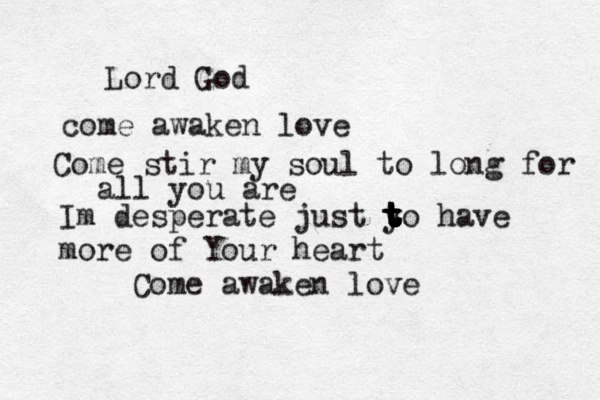 Lord God
come awaken love
Come stir my soul to long for
all you are
Im desperate just to have
more of Your heart
Come awaken love